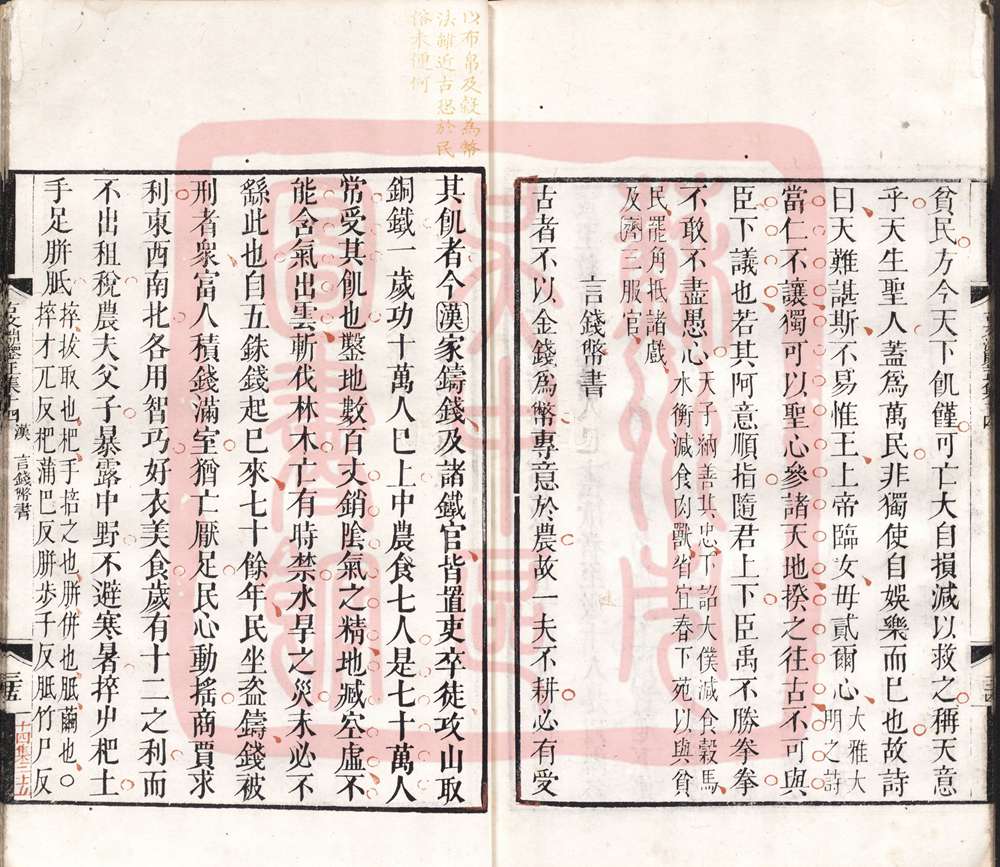 貧民方今天下飢饉可亡大自損減以救之稱天意
乎天生聖人蓋爲萬民非獨使自娛樂而巳也故詩
曰天難諶斯不易惟王上帝臨女毋貳爾心大雅大明之詩
當仁不讓獨可以聖心參諸天地揆之往古不可與
臣下議也若其阿意順指隨君上下臣禹不勝拳拳
不敢不盡愚心天子納善其忠下詔大僕減食穀馬
水衡減食肉獸省宜春下苑以與貧
民罷角抵諸戲
及濟三服官
言錢幣書
古者不以金錢爲幣專意於農故一夫不耕必有受
以布帛及穀為幣
法雖近古恐於民
俗未便何
其飢者今漢家鑄錢及諸鐵官皆置吏卒徒攻山取
銅鐵一歲功十萬人巳上中農食七人是七十萬人
常受其飢也鑿地數百丈銷陰氣之精地臧空虛不
能含氣出雲斬伐林木亡有時禁水旱之災未必不
繇此也自五銖錢起巳來七十餘年民坐盜鑄錢被
刑者衆富人積錢滿室猶亡厭足民心動搖商賈求
利東西南北各用智巧好衣美食歲有十二之利而
不出租稅農夫父子暴露中野不避寒暑捽屮杷土
手足胼胝捽拔取也杷手掊之也胼併也胝繭也○
捽才兀反杷蒲巴反胼步千反胝竹尸反
漢 言錢幣書
三五
十四集三十五